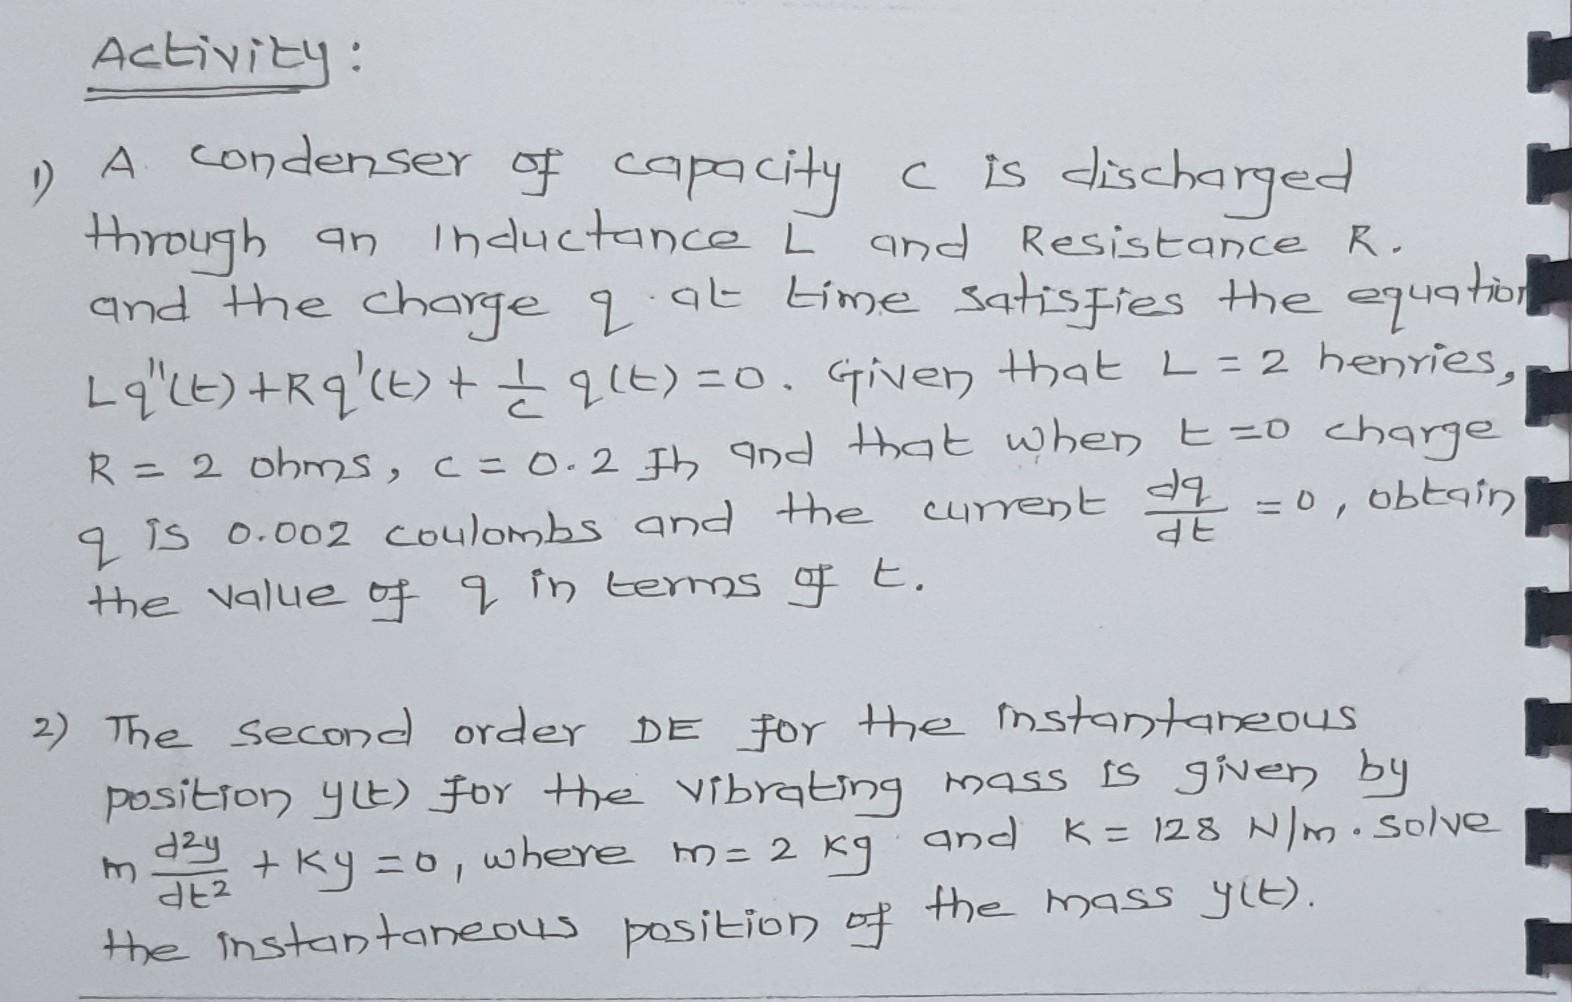 Activity:
1) A condenser of capacity c is discharged
through an inductance L and Resistance R.
and the charge q at time satisfies the equation
Lq''(t)+Rq'(t)+ 1/c q(t)=0. Given that L=2 henries,
R=2 ohms, c=0.2 fh and that when t=0 charge
q is 0.002 coulombs and the current dq/dt =0, obtain
the value of q in terms of t.
2) The second order DE for the instantaneous
position y(t) for the vibrating mass is given by
m d2y/dt2 + Ky=0, where m=2 kg and K=128 N/m. solve
the instantaneous position of the mass y(t).